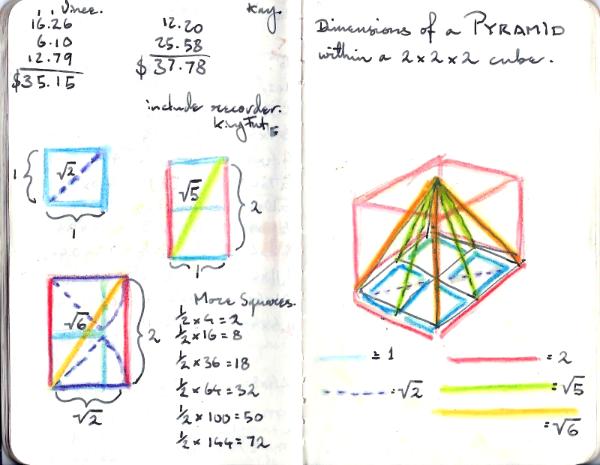 Vince.
16.26
6.10
12.79
$35.15
Kay.
12.20
25.58
$37.78
include recorder.
King Tut
1
√2
1
√5
2
1
√6
2
√2
More Squares.
½ x 4 = 2
½ x 16 = 8
½ x 36 = 18
½ x 64 = 32
½ x 100 = 50
½ x 144 = 72
Dimensions of a PYRAMID
within a 2 x 2 x 2 cube.
= 1
= 2
= √2
= √5
= √6